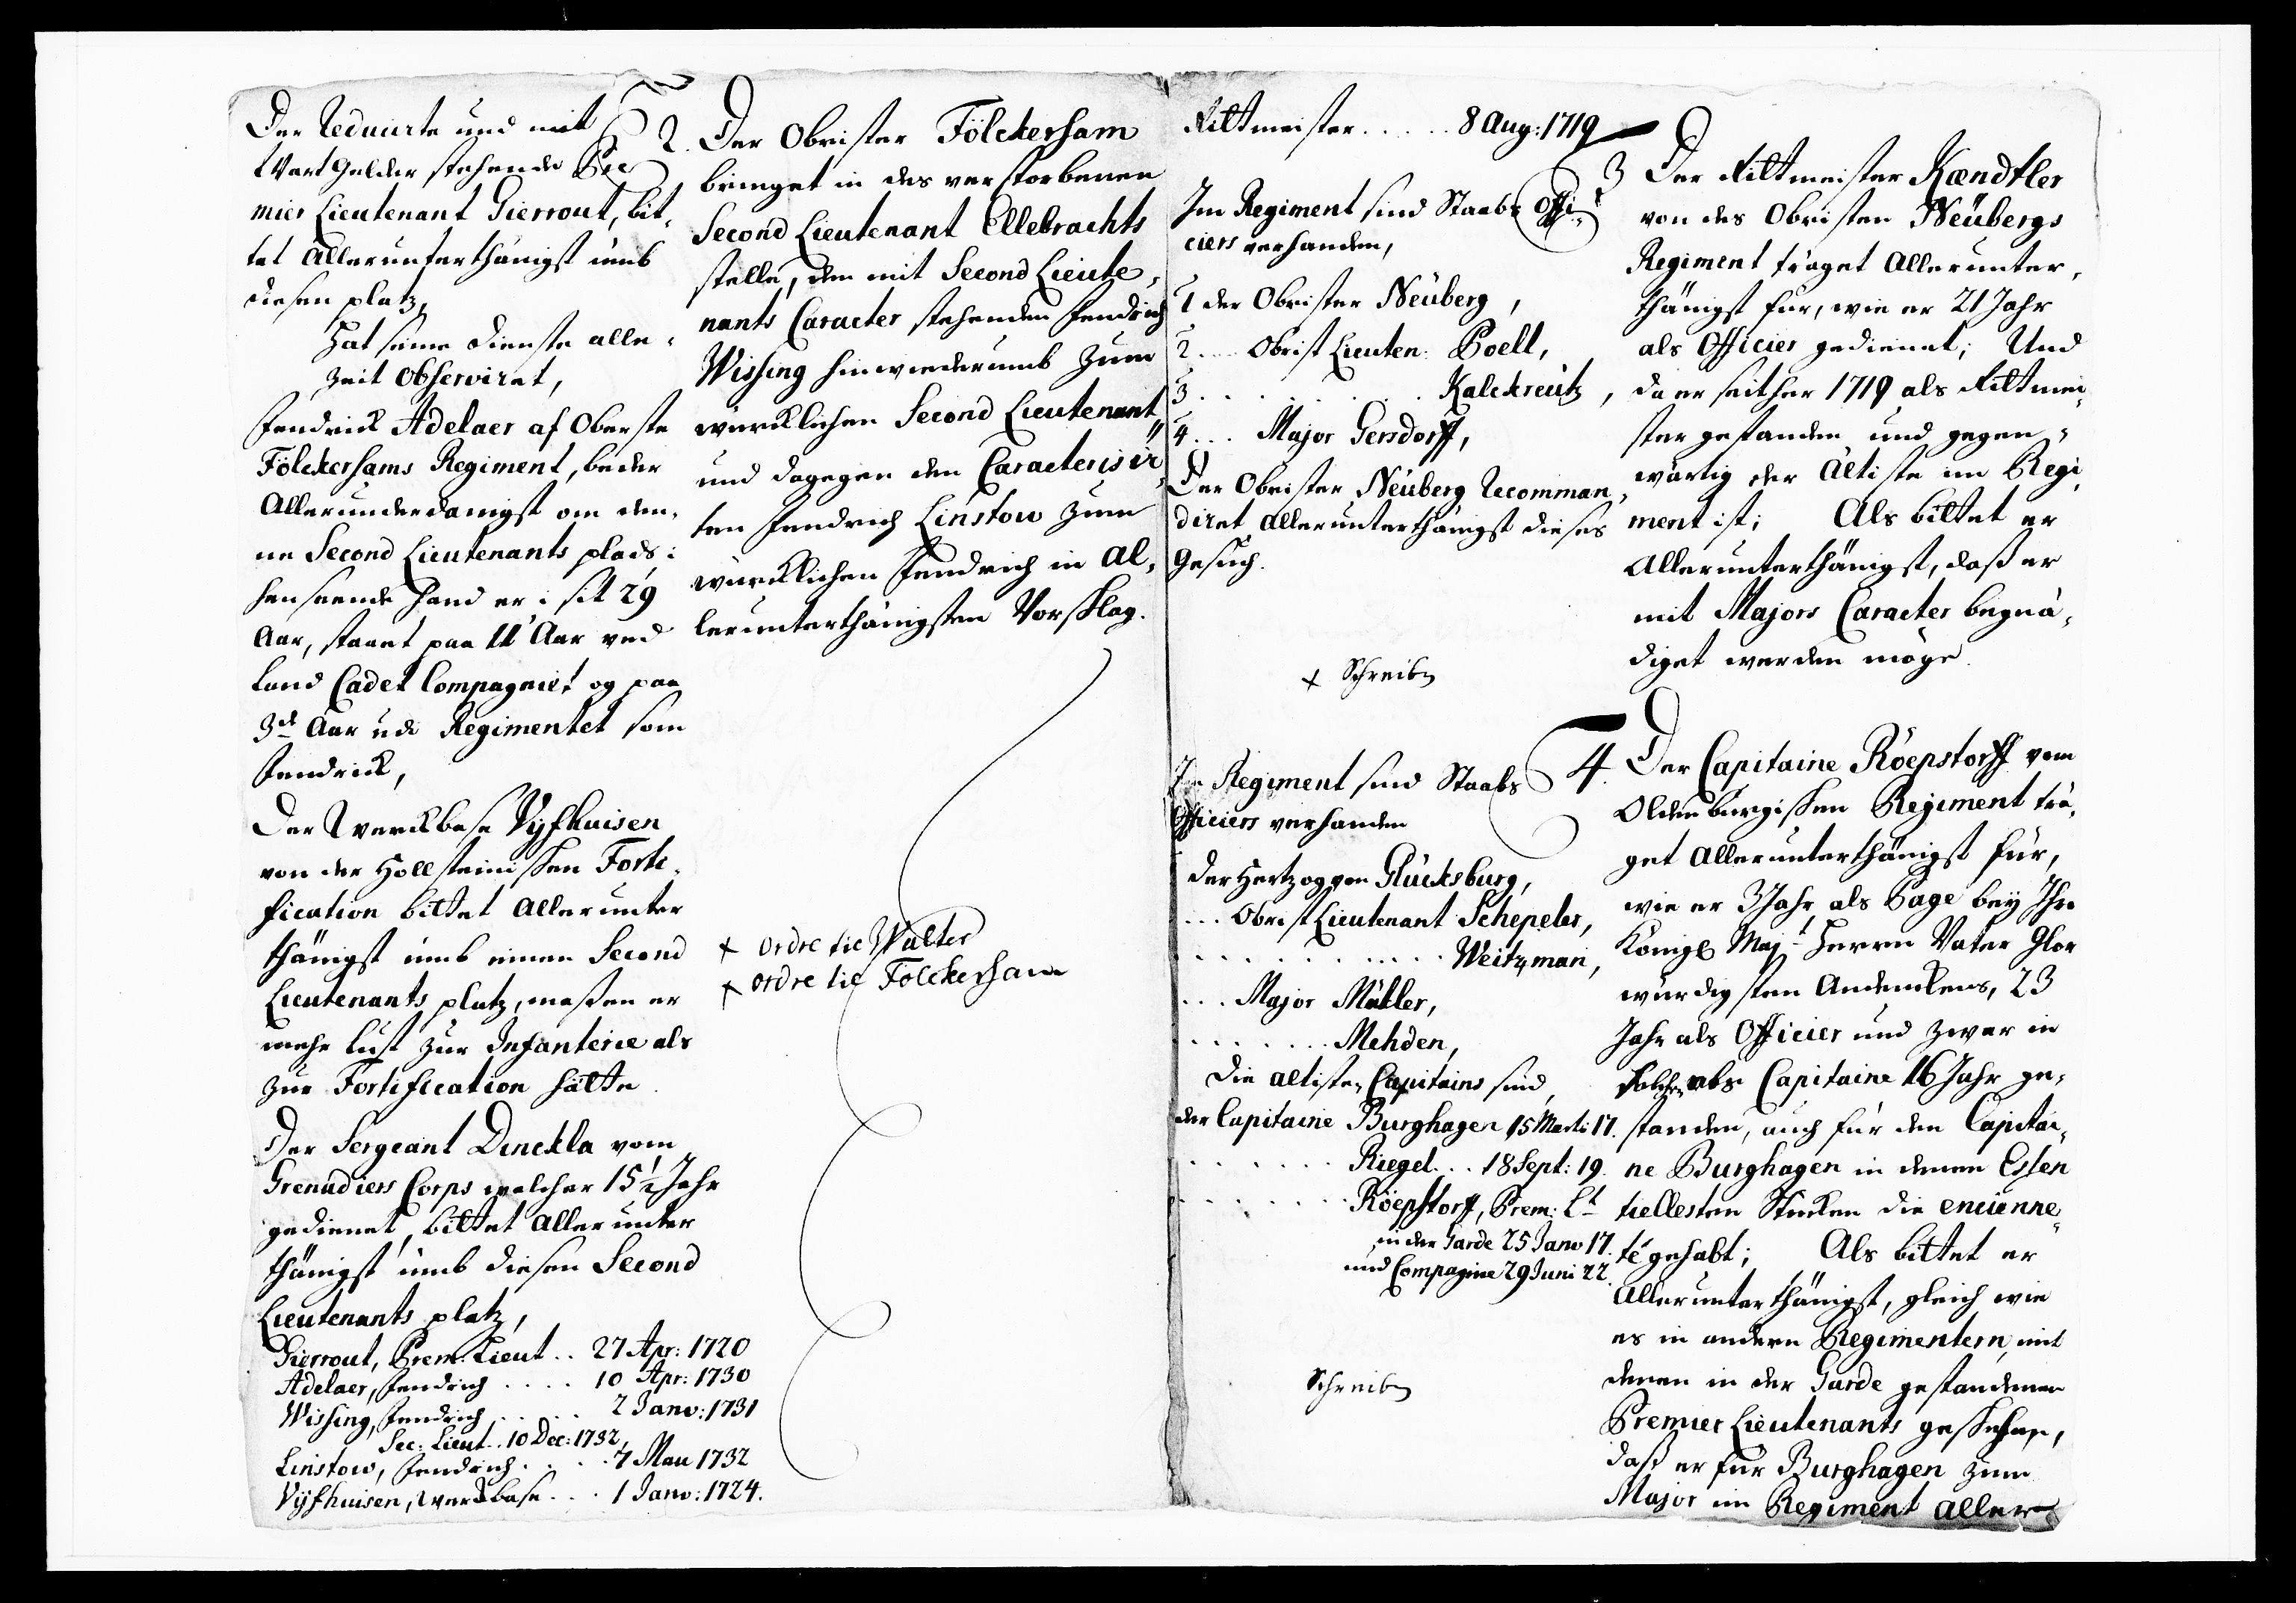 Der Reducirte und mit
Wart Gelder stehende Pre
mier Lieutenant Gierrout, bit-
tet Allerunterthänigst umb
diesen platz,
Hat seine Dienste alle-
zeit Observiret,
Fendrick Adelaer af Oberste
Fölckersams Regiment, beder
Allerunderdanigst om den-
ne Second Lieutenants plads i
henseende hand er i sit 29
Aar, staaet paa 11 Aar ved
Land Cadet Compagniet og paa
3de Aar udi Regimentet som
Fendrick,
Der Werckbase Vijfhuisen
von der Hollsteinischen Forti-
fication bittet Allerunter
thänigst umb einen Second
Lieutenants platz, maßen er
mehr Lust zur Infanterie als
zur Fortification hätte.
Der Sergeant Dinckla vom
Grenadiers Corps welcher 15½ Jahr
gedienet, bittet Allerunter
thänigst umb diesen Second
Lieutenants platz,
Gierrout, Prem: Lieut .. 27 Apr: 1720
Adelaer, Fendrich .... 10 Apr: 1730
Wissing, Fendrich ..... 2 Janv: 1731
Sec: Lieut .. 10 Dec: 1732,
Linstow, Fendrich .... 7 Mau 1732
Vijfhuisen, Werckbase ... 1 Janv: 1724.
2. Der Obrister Fölckersam
bringet in des verstorbenen
Second Lieutenant Ellebrachts
stelle, den mit Second Lieute-
nants Caracter stehenden Fendrich
Wissing hinwiederumb zum
würcklichen Second Lieutenant,
und dagegen den Caracterisir-
ten Fendrich Linstow zum
würcklichen Fendrich in al-
lerunterthänigsten Vorschlag.
+ ordre til Walter
+ ordre til Fölckersam
Rittmeister ..... 8 Aug: 1719
Im Regiment sind Staabs Offi-
ciers verhanden,
1 der Obrister Neüberg,
2 .... Obrist Lieuten: Poell,
3 ......... Kalckreütz,
4 ... Major Gersdorff,
Der Obrister Neüberg recomman-
diret allerunterthänigst dieses
Gesuch.
+ Schreiben
Im Regiment sind Staabs
Officiers verhanden
der Hertzog von Glücksburg,
... Obrist Lieutenant Schepeler,
........... Weitzman,
... Major Müller,
....... Mehden,
Die ältiste Capitains sind,
der Capitaine Burghagen 15 Marti 17.
....... Riegel ... 18 Sept: 19.
....... Röepstorff, Prem: Lt
in der Garde 25 Janv 17.
und Compagnie 29 Juni 22.
Schreiben
3 Der Rittmeister Kændtler
von des Obristen Neübergs
Regiment träget Allerunter-
thänigst für, wie er 21 Jahr
als Officier gedienet; Und
da er seither 1719 als Rittmei-
ster gestanden und gegen-
wärtig der Ältiste im Regi-
ment ist; Als bittet er
Allerunterthänigst, daß er
mit Majors Caracter begnä-
diget werden möge.
4. Der Capitaine Röepstorff vom
Oldenburgischen Regiment trä-
get Allerunterthänigst für,
wie er 3 Jahr als Page bey Ihro
Königl Mayt Herren Vater Glor
würdigsten Andenckens, 23
Jahr als Officier und zwar in
solchen als Capitaine 16 Jahr ge-
standen, auch für den Capitai-
ne Burghagen in denen Essen
tiellesten Stücken die encienne-
té gehabt; Als bittet er
Allerunterthänigst, gleich wie
es in andern Regimentern, mit
denen in der Garde gestandenen
Premier Lieutenants geschehen,
daß er für Burghagen zum
Major im Regiment aller-